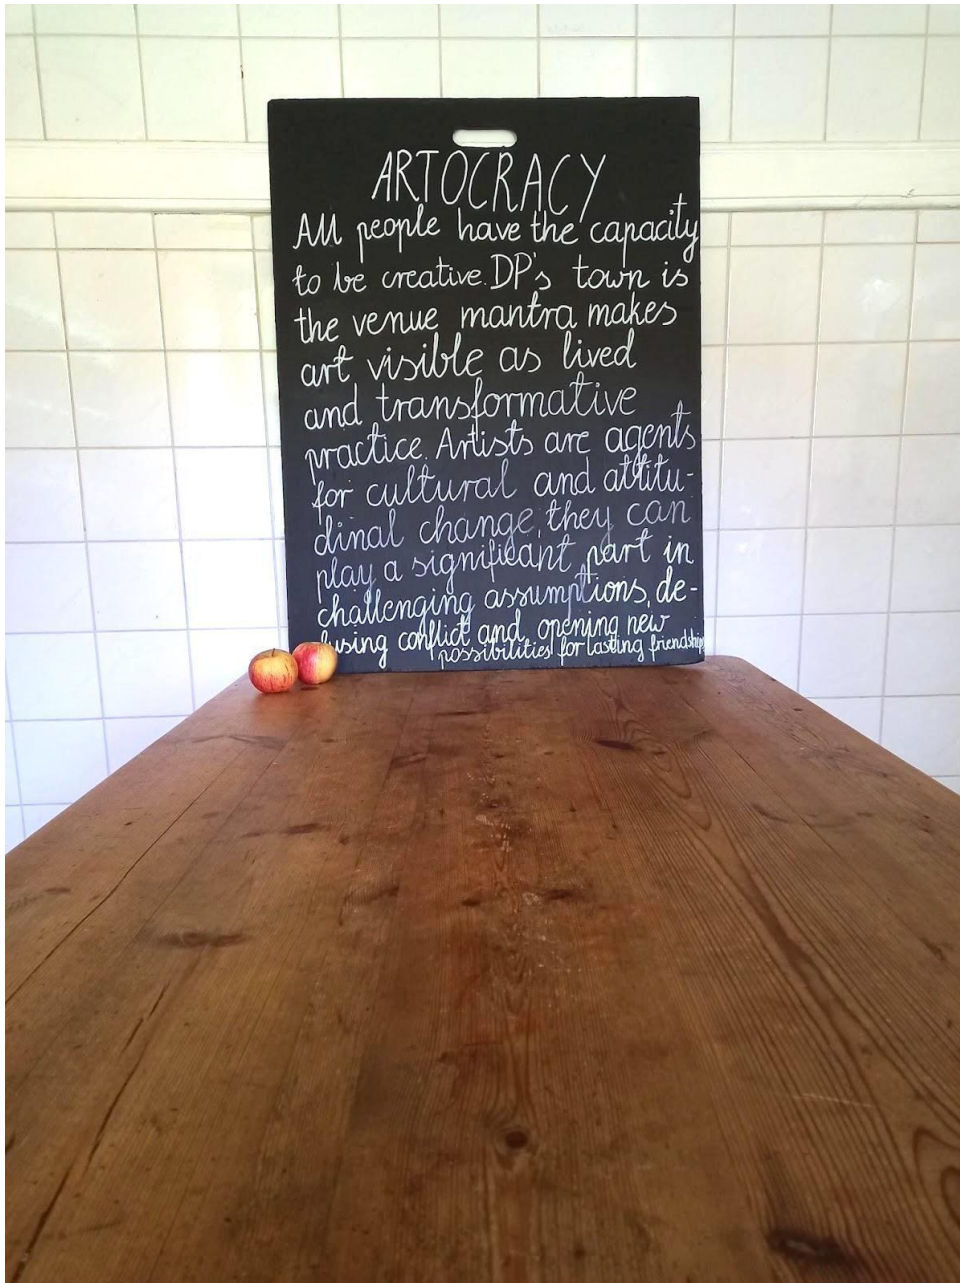 ARTOCRACY
All people have the capacity
to be creative. DP's town is
the venue mantra makes
art visible as lived
and transformative
practice. Artists are agents
for cultural and attitu-
dinal change, they can
play a significant part in
challenging assumptions, de-
fusing conflict and opening new
possibilities for lasting friendships